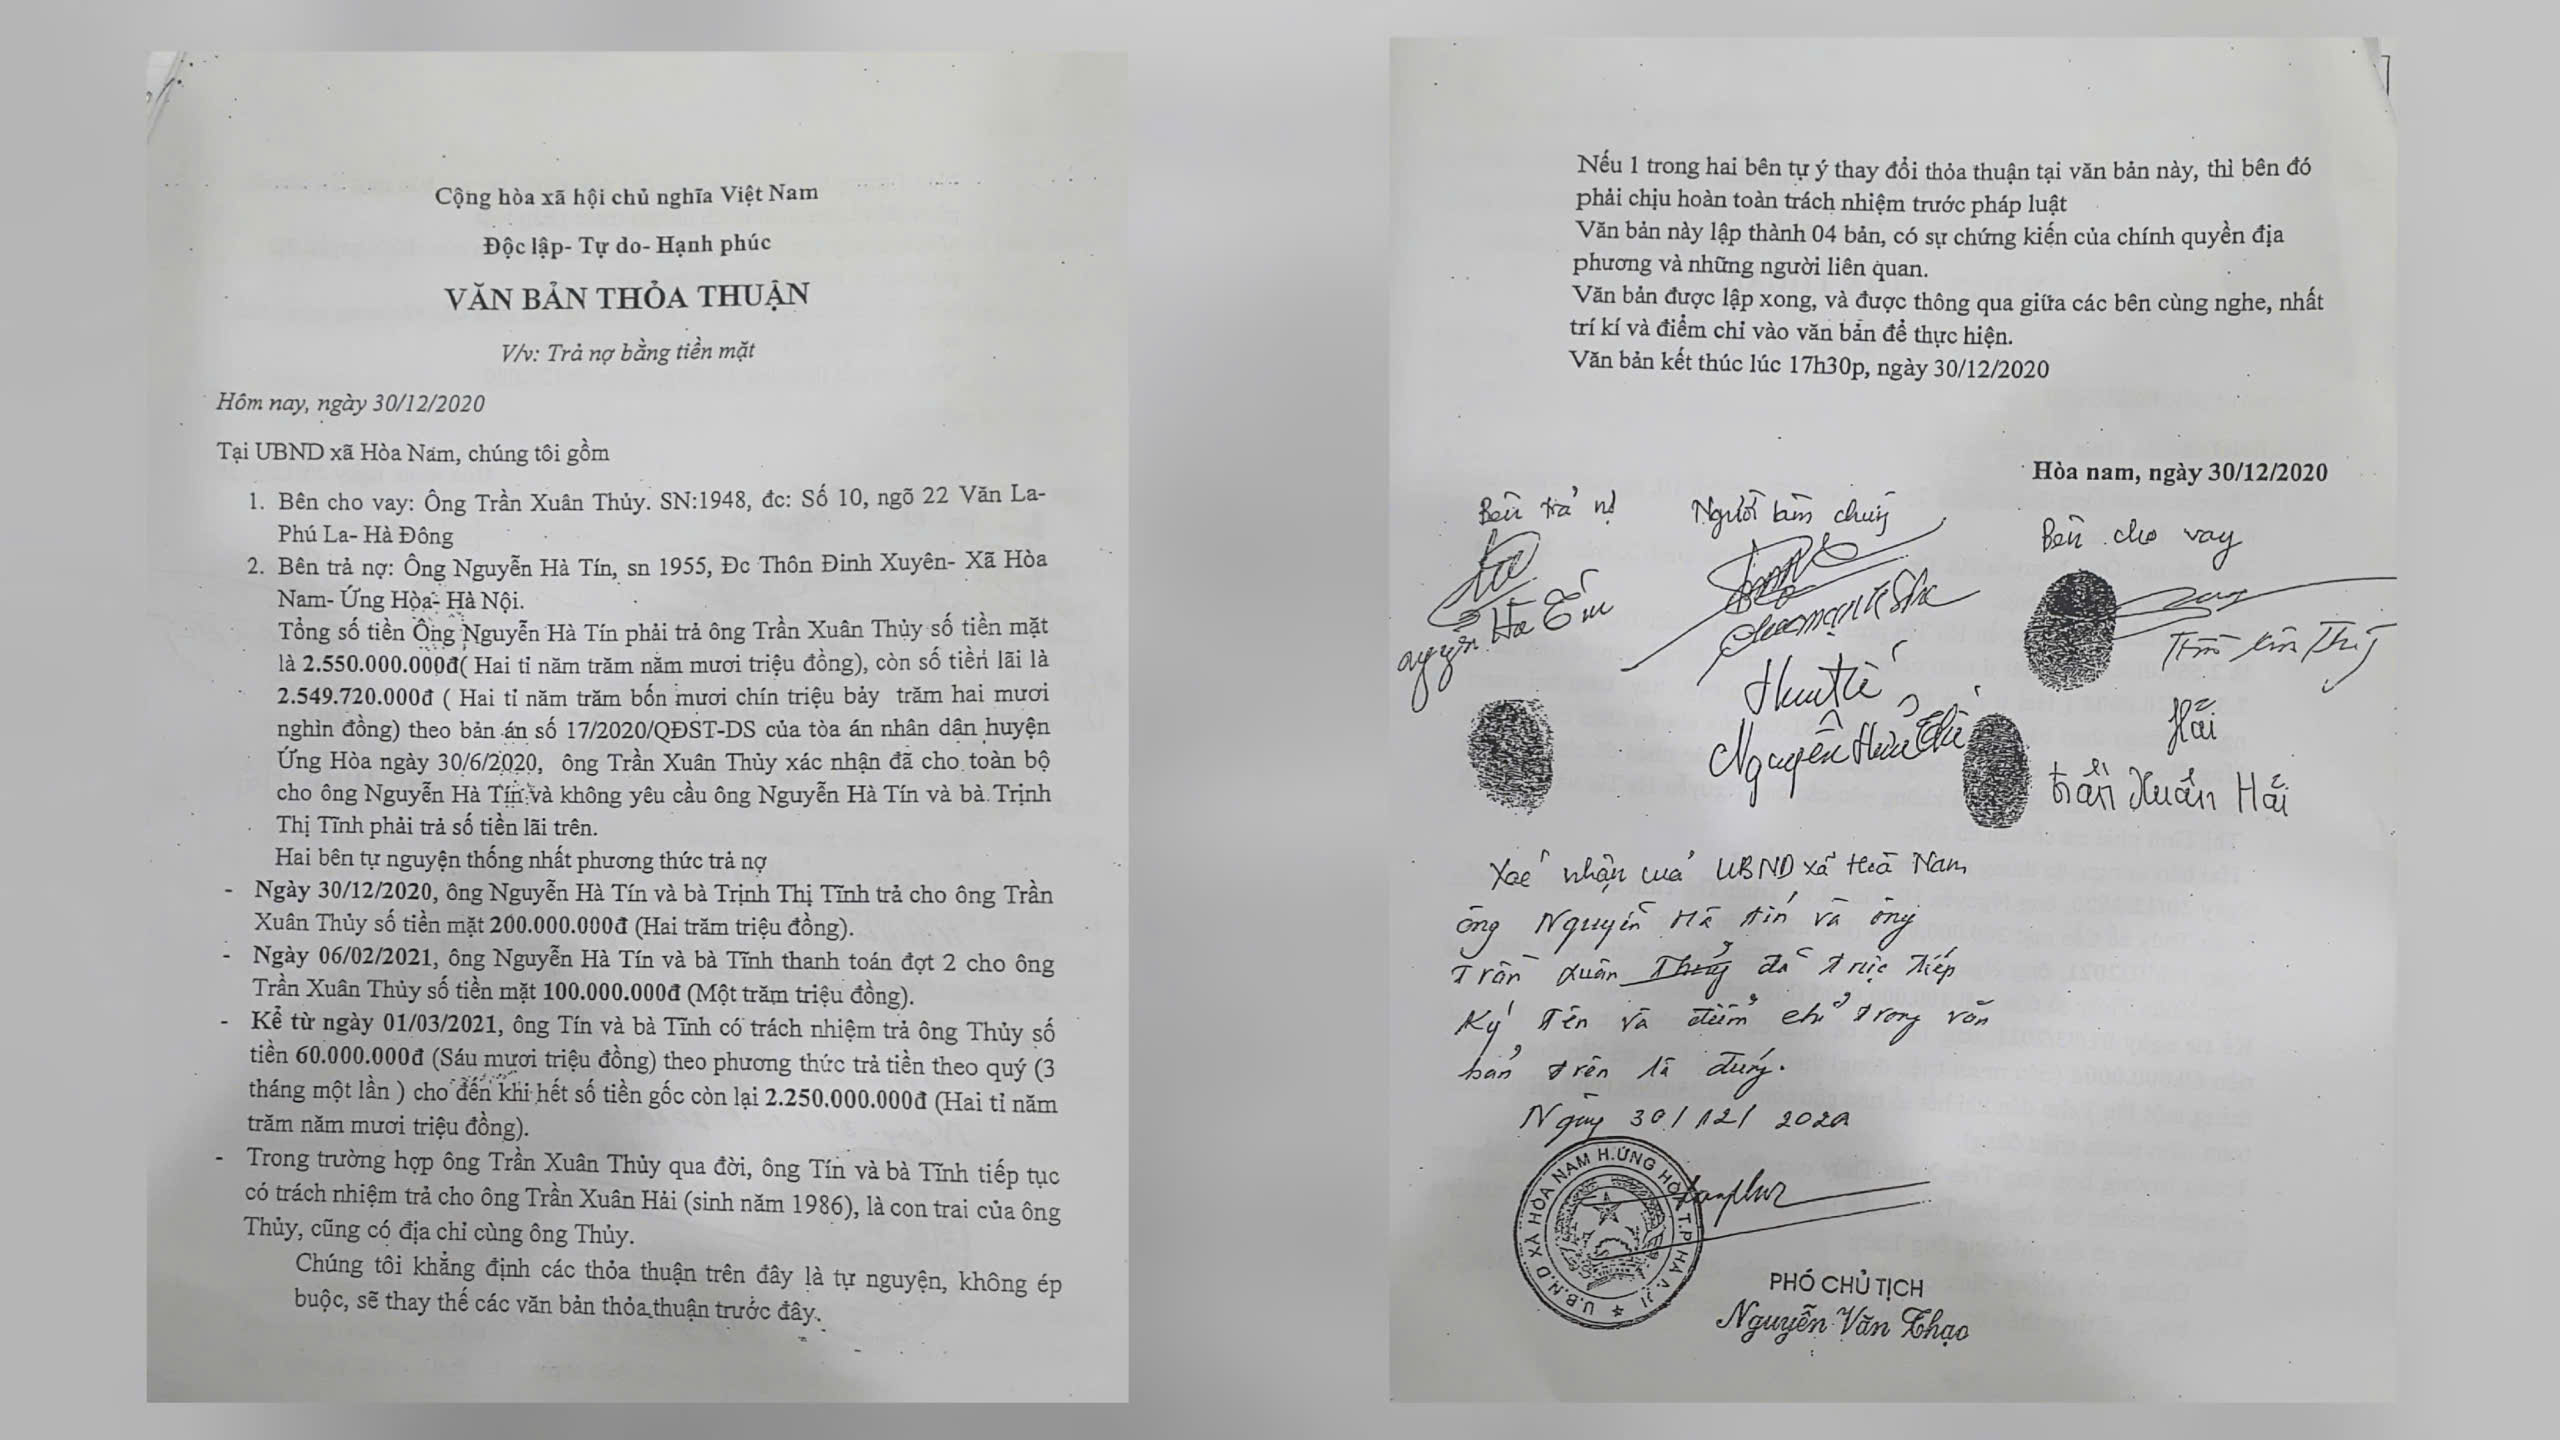 Cộng hòa xã hội chủ nghĩa Việt Nam
Độc lập- Tự do- Hạnh phúc
VĂN BẢN THỎA THUẬN
V/v: Trả nợ bằng tiền mặt
Hôm nay, ngày 30/12/2020
Tại UBND xã Hòa Nam, chúng tôi gồm
1. Bên cho vay: Ông Trần Xuân Thủy. SN:1948, đc: Số 10, ngõ 22 Văn La-
Phú La- Hà Đông
2. Bên trả nợ: Ông Nguyễn Hà Tín, sn 1955, Đc Thôn Đinh Xuyên- Xã Hòa
Nam- Ứng Hòa- Hà Nội.
Tổng số tiền Ông Nguyễn Hà Tín phải trả ông Trần Xuân Thủy số tiền mặt
là 2.550.000.000đ( Hai tỉ năm trăm năm mươi triệu đồng), còn số tiền lãi là
2.549.720.000đ ( Hai tỉ năm trăm bốn mươi chín triệu bảy trăm hai mươi
nghìn đồng) theo bản án số 17/2020/QĐST-DS của tòa án nhân dân huyện
Ứng Hòa ngày 30/6/2020, ông Trần Xuân Thủy xác nhận đã cho toàn bộ
cho ông Nguyễn Hà Tín và không yêu cầu ông Nguyễn Hà Tín và bà Trịnh
Thị Tĩnh phải trả số tiền lãi trên.
Hai bên tự nguyện thống nhất phương thức trả nợ
- Ngày 30/12/2020, ông Nguyễn Hà Tín và bà Trịnh Thị Tĩnh trả cho ông Trần
Xuân Thủy số tiền mặt 200.000.000đ (Hai trăm triệu đồng).
- Ngày 06/02/2021, ông Nguyễn Hà Tín và bà Tĩnh thanh toán đợt 2 cho ông
Trần Xuân Thủy số tiền mặt 100.000.000đ (Một trăm triệu đồng).
- Kể từ ngày 01/03/2021, ông Tín và bà Tĩnh có trách nhiệm trả ông Thủy số
tiền 60.000.000đ (Sáu mươi triệu đồng) theo phương thức trả tiền theo quý (3
tháng một lần ) cho đến khi hết số tiền gốc còn lại 2.250.000.000đ (Hai tỉ năm
trăm năm mươi triệu đồng).
- Trong trường hợp ông Trần Xuân Thủy qua đời, ông Tín và bà Tĩnh tiếp tục
có trách nhiệm trả cho ông Trần Xuân Hải (sinh năm 1986), là con trai của ông
Thủy, cũng có địa chỉ cùng ông Thủy.
Chúng tôi khẳng định các thỏa thuận trên đây là tự nguyện, không ép
buộc, sẽ thay thế các văn bản thỏa thuận trước đây.
Nếu 1 trong hai bên tự ý thay đổi thỏa thuận tại văn bản này, thì bên đó
phải chịu hoàn toàn trách nhiệm trước pháp luật
Văn bản này lập thành 04 bản, có sự chứng kiến của chính quyền địa
phương và những người liên quan.
Văn bản được lập xong, và được thông qua giữa các bên cùng nghe, nhất
trí kí và điểm chỉ vào văn bản để thực hiện.
Văn bản kết thúc lúc 17h30p, ngày 30/12/2020
Hòa nam, ngày 30/12/2020
Bên trả nợ
Người làm chứng
Bên cho vay
Nguyễn Hà Tín
Trần Xuân Thủy
Nguyễn Hữu
Hải
trần Xuân Hải
Xác nhận của UBND xã Hoà Nam
ông Nguyễn Hà tín và ông
Trần Xuân Thủy đã trực tiếp
Ký tên và điểm chỉ trong văn
bản trên là đúng.
Ngày 30/12/2020
U.B.N.D XÃ HÒA NAM H.ỨNG HÒA T.P HÀ NỘI
PHÓ CHỦ TỊCH
Nguyễn Văn Thạo